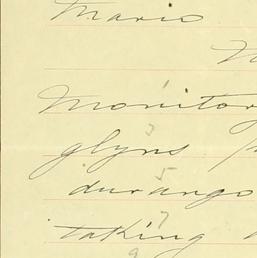 Mario
Monitor
glyns
durango
taking